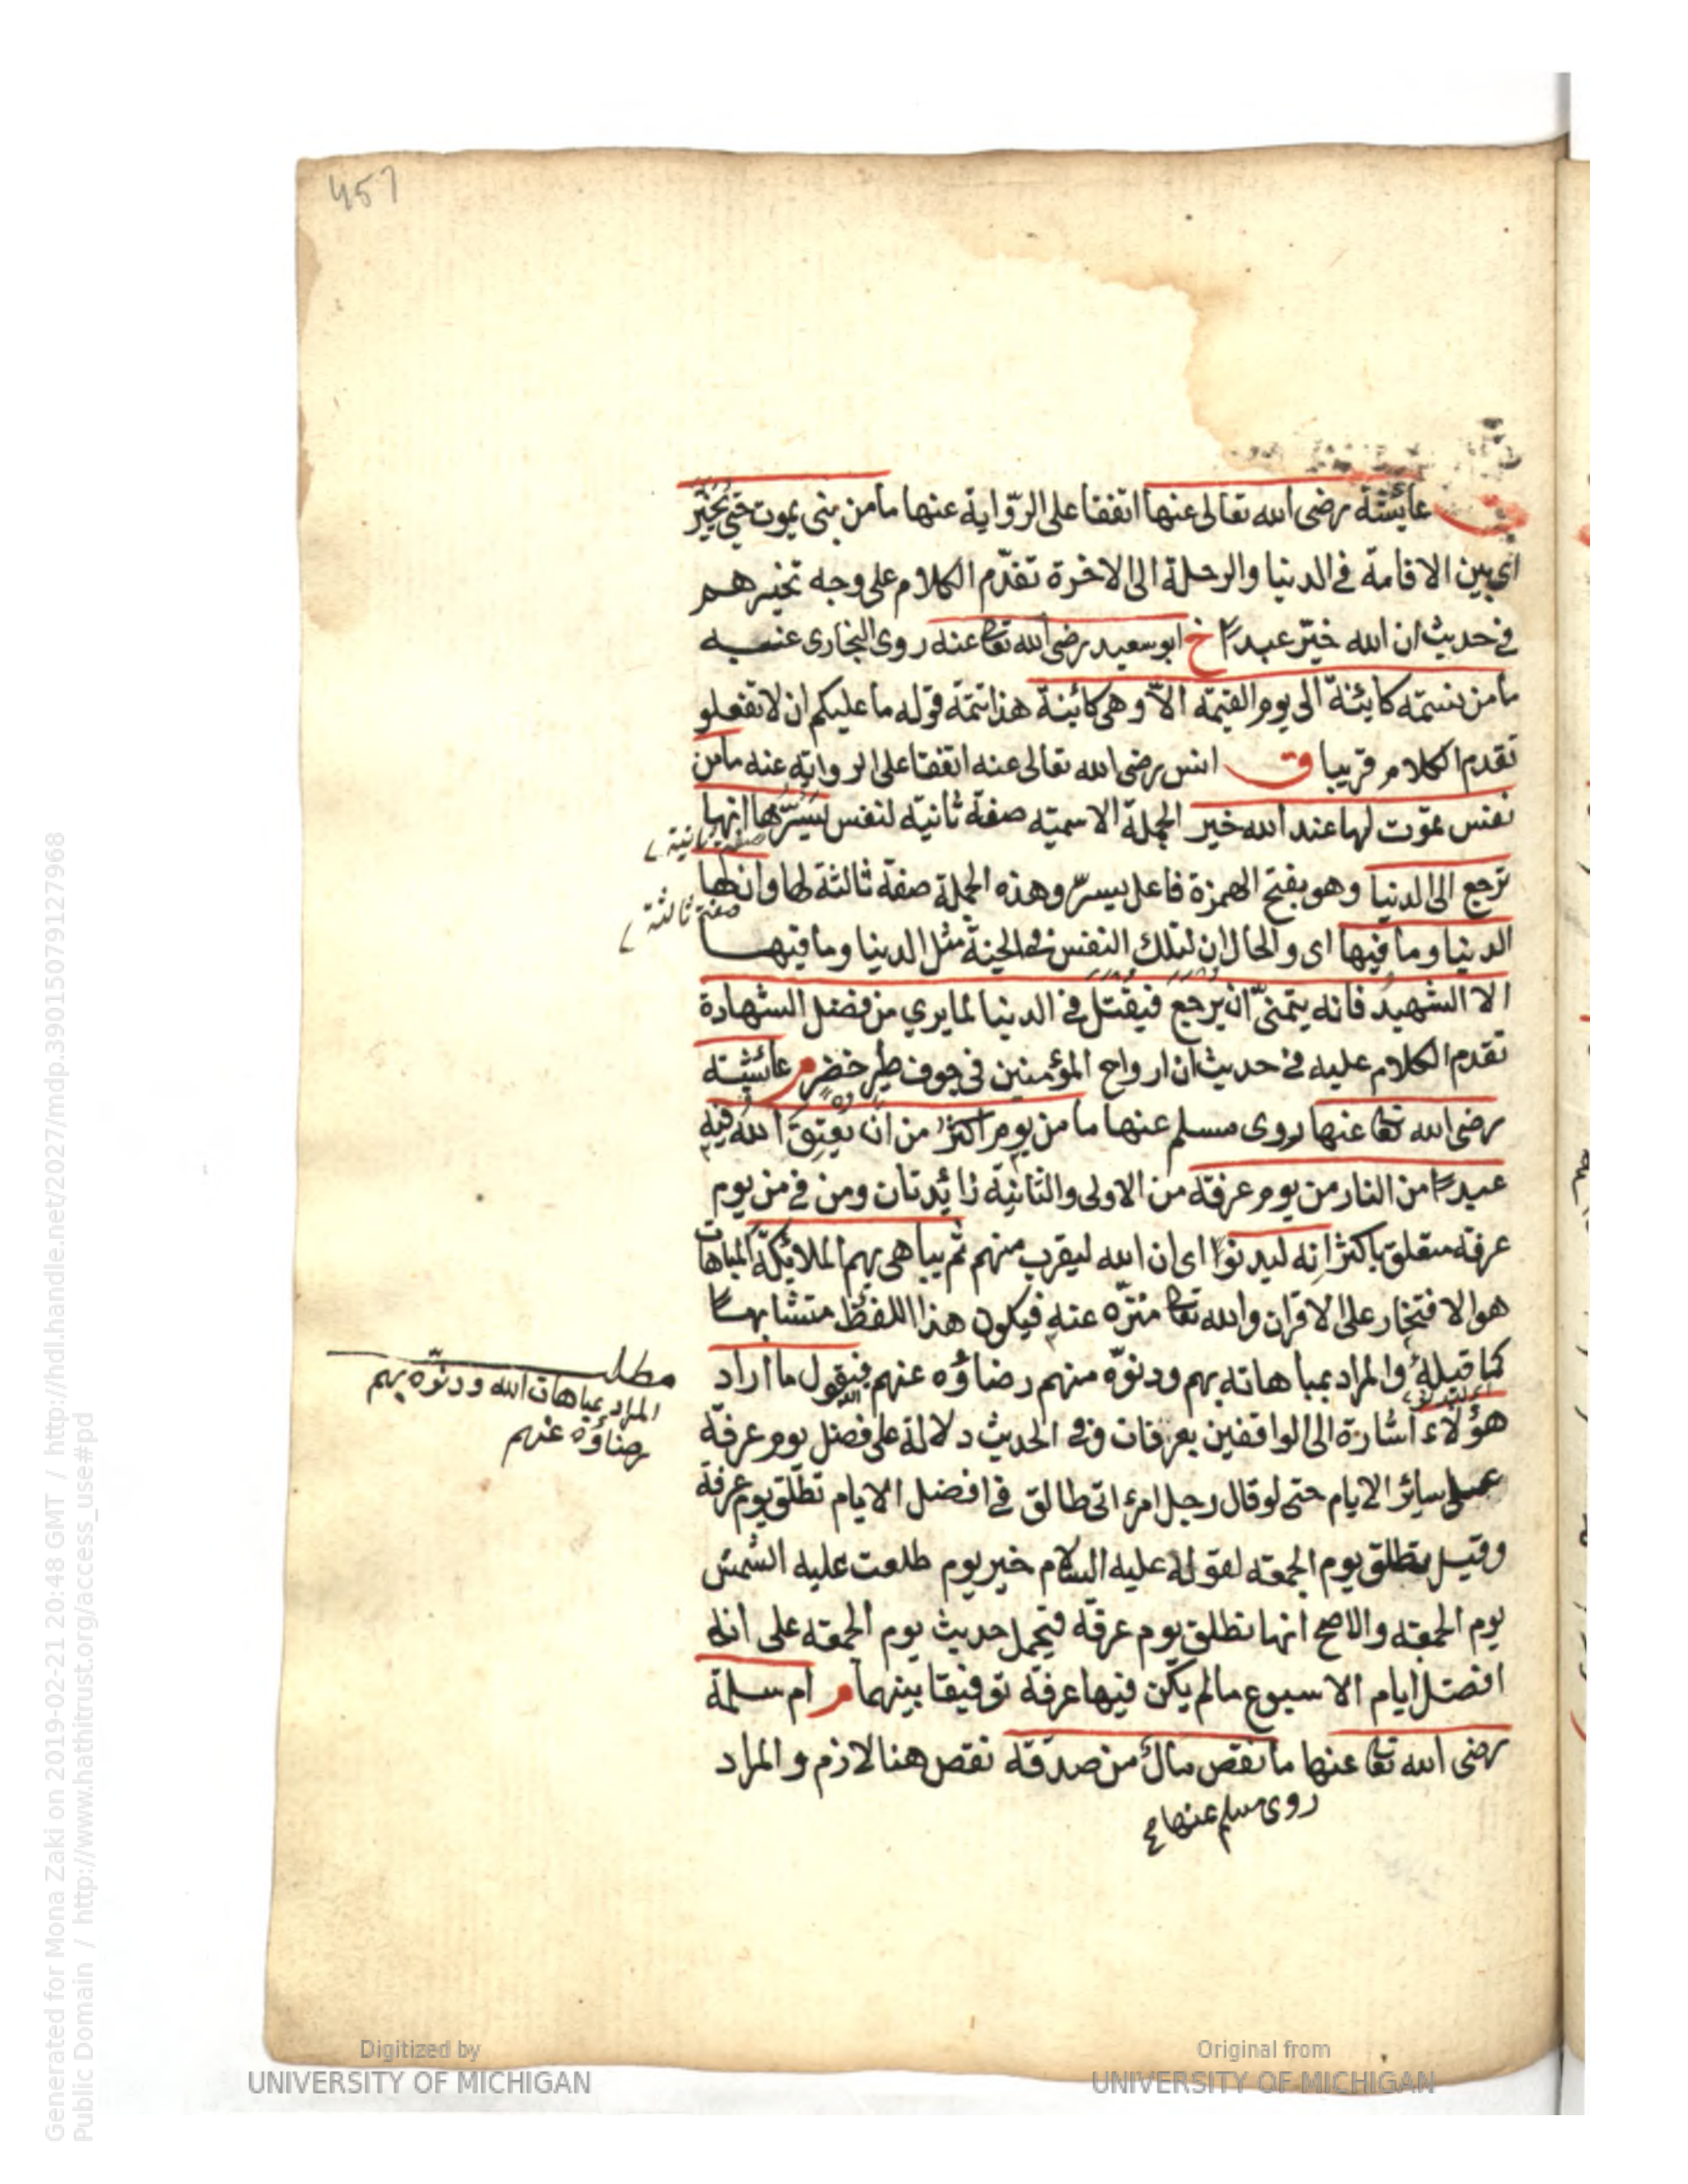 457
ق عايشة رضى الله تعالى عنها اتفقا على الرّواية عنها ما من نبى يموت حتى يخيّر
اى بين الاقامة فى الدنيا والرحلة الى الاخرة تقدّم الكلام على وجه تخييرهم
فى حديث ان الله خيّر عبدًا خ ابو سعيد رضى الله تعا عنه روى البخارى عنه
ما من نسمته كائنة الى يوم القيمة الاّ وهى كائنة هذا تتمّة قوله ما عليكم ان لا تفعلو
تقدم الكلام قريبا ق انس رضى الله تعالى عنه اتفقا على الرواية عنه ما من
نفس تموت لها عند الله خير الجملة الاسميّه صفة ثانيّه لنفس يسرّها انها
صفة ثانية
ترجع الى الدنيا وهو بفتح الهمزة فاعل يسرّ وهذه الجملة صفة ثالثة لها وان لها
صفة ثالثة
الدنيا وما فيها اى والحال ان لتلك النفس فى الجنّة مثل الدنيا وما فيها
الا الشهيدُ فانه يتمنّى ان يرجع فيقتل فى الدنيا لما يرى من فضل الشهادة
تقدم الكلام عليه فى حديث ان ارواح المؤمنين فى جوف طير خضر م عائشة
رضى الله تعا عنها روى مسلم عنها ما من يوم اكثرُ من ان يُعتِقَ اللهُ فيه
عبدًا من النار من يوم عرفة من الاولى والثانية زائدتان ومن فى من يوم
عرفة متعلق باكثر انه ليدنوا اى ان الله ليقرب منهم ثم يباهى بهم الملائكة المباهات
هو الافتخار على الاقران والله تعا منزّه عنه فيكون هذا اللفظ متشابهًا
كما قبله والمراد بمباهاته بهم ودنوّه منهم رضاؤه عنهم فيقول ما اراد
هؤلاء اشارة الى الواقفين بعرفات وفى الحديث دلالة على فضل يوم عرفة
على سائر الايام حتى لو قال رجل امرءاتى طالق فى افضل الايام تطلّق يوم عرفة
وقيل يتطلق يوم الجمعة لقوله عليه السلام خير يوم طلعت عليه الشمس
يوم الجمعة والاصح انها تطلق يوم عرفة فيحمل حديث يوم الجمعة على انه
افضل ايام الاسبوع ما لم يكن فيها عرفة توفيقا بينهما م ام سلمة
رضى الله تعا عنها ما نقص مالٌ من صدقة نقص هنا لازم والمراد
روى مسلم عنها صح
مطلب
المراد بمباهات الله ودنوّه بهم
رضاؤه عنهم
Digitized by
UNIVERSITY OF MICHIGAN
Original from
UNIVERSITY OF MICHIGAN
Generated for Mona Zaki on 2019-02-21 20:48 GMT / http://hdl.handle.net/2027/mdp.39015079127968
Public Domain / http://www.hathitrust.org/access_use#pd